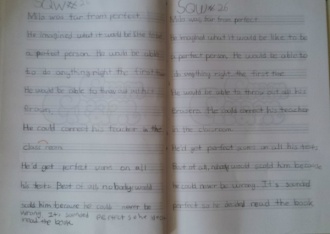 SQW#25
Milo was far from perfect.
He imagined what it would be like to be
a perfect person. He would be able
to do anything right the first time
He would be able to throw out all his
erasers.
He could correct his teacher in the
class room.
He'd get perfect scores on all
his tests. Best of all, nobody would
scold him because he could never be
wrong. It sounded perfect
read the book
SQW#26
Milo was far from perfect.
He imagined what it would be like to be
a perfect person. He would be able to
do anything right the first time.
He would be able to throw out all his
erasers. He could correct his teacher
in the classroom.
He'd get perfect scores on all his tests.
Best of all, nobody would scold him because
he could never be wrong. It sounded
perfect so he read the book